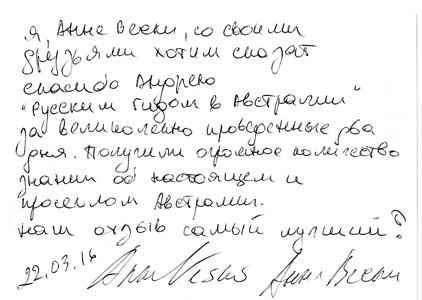 Я, Анне Вески, со своими
друзьями хотим сказат
спасибо Андрею
"Русским гидом в Австралии"
за великолепно проведенные два
дня. Получили огромное количество
знании об настоящем и
прошлом Австралии.
наш отзыв самый лучший!
22.03.16 Anne Veski Анне Вески